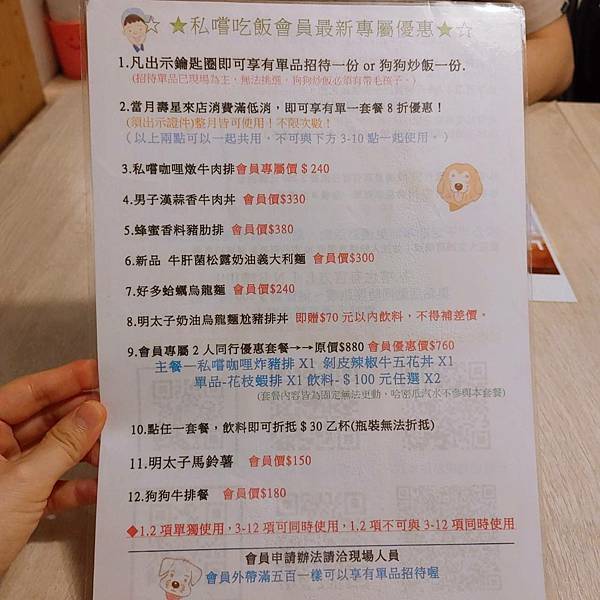 ☆ ★私嚐吃飯會員最新專屬優惠★☆
1.凡出示鑰匙圈即可享有單品招待一份 or 狗狗炒飯一份.
(招待單品已現場為主，無法挑選，狗狗炒飯必須有帶毛孩子。)
2.當月壽星來店消費滿低消，即可享有單一套餐 8 折優惠！
(須出示證件)整月皆可使用！不限次數！
(以上兩點可以一起共用，不可與下方 3-10 點一起使用。)
3.私嚐咖哩燉牛肉排會員專屬價$240
4.男子漢蒜香牛肉丼 會員價$330
5.蜂蜜香料豬肋排 會員價$380
6.新品 牛肝菌松露奶油義大利麵 會員價$300
7.好多蛤蠣烏龍麵 會員價$240
8.明太子奶油烏龍麵尬豬排丼 即贈$70 元以內飲料，不得補差價。
9.會員專屬 2 人同行優惠套餐→→原價$880 會員優惠價$760
主餐—私嚐咖哩炸豬排 X1 剝皮辣椒牛五花丼 X1
單品-花枝蝦排 X1 飲料-$100 元任選 X2
(套餐內容皆為固定無法更動，哈密瓜汽水不參與本套餐)
10.點任一套餐，飲料即可折抵$30 乙杯(瓶裝無法折抵)
11.明太子馬鈴薯 會員價$150
12.狗狗牛排餐 會員價$180
◆1.2 項單獨使用，3-12 項可同時使用，1.2 項不可與 3-12 項同時使用
會員申請辦法請洽現場人員
會員外帶滿五百一樣可以享有單品招待喔